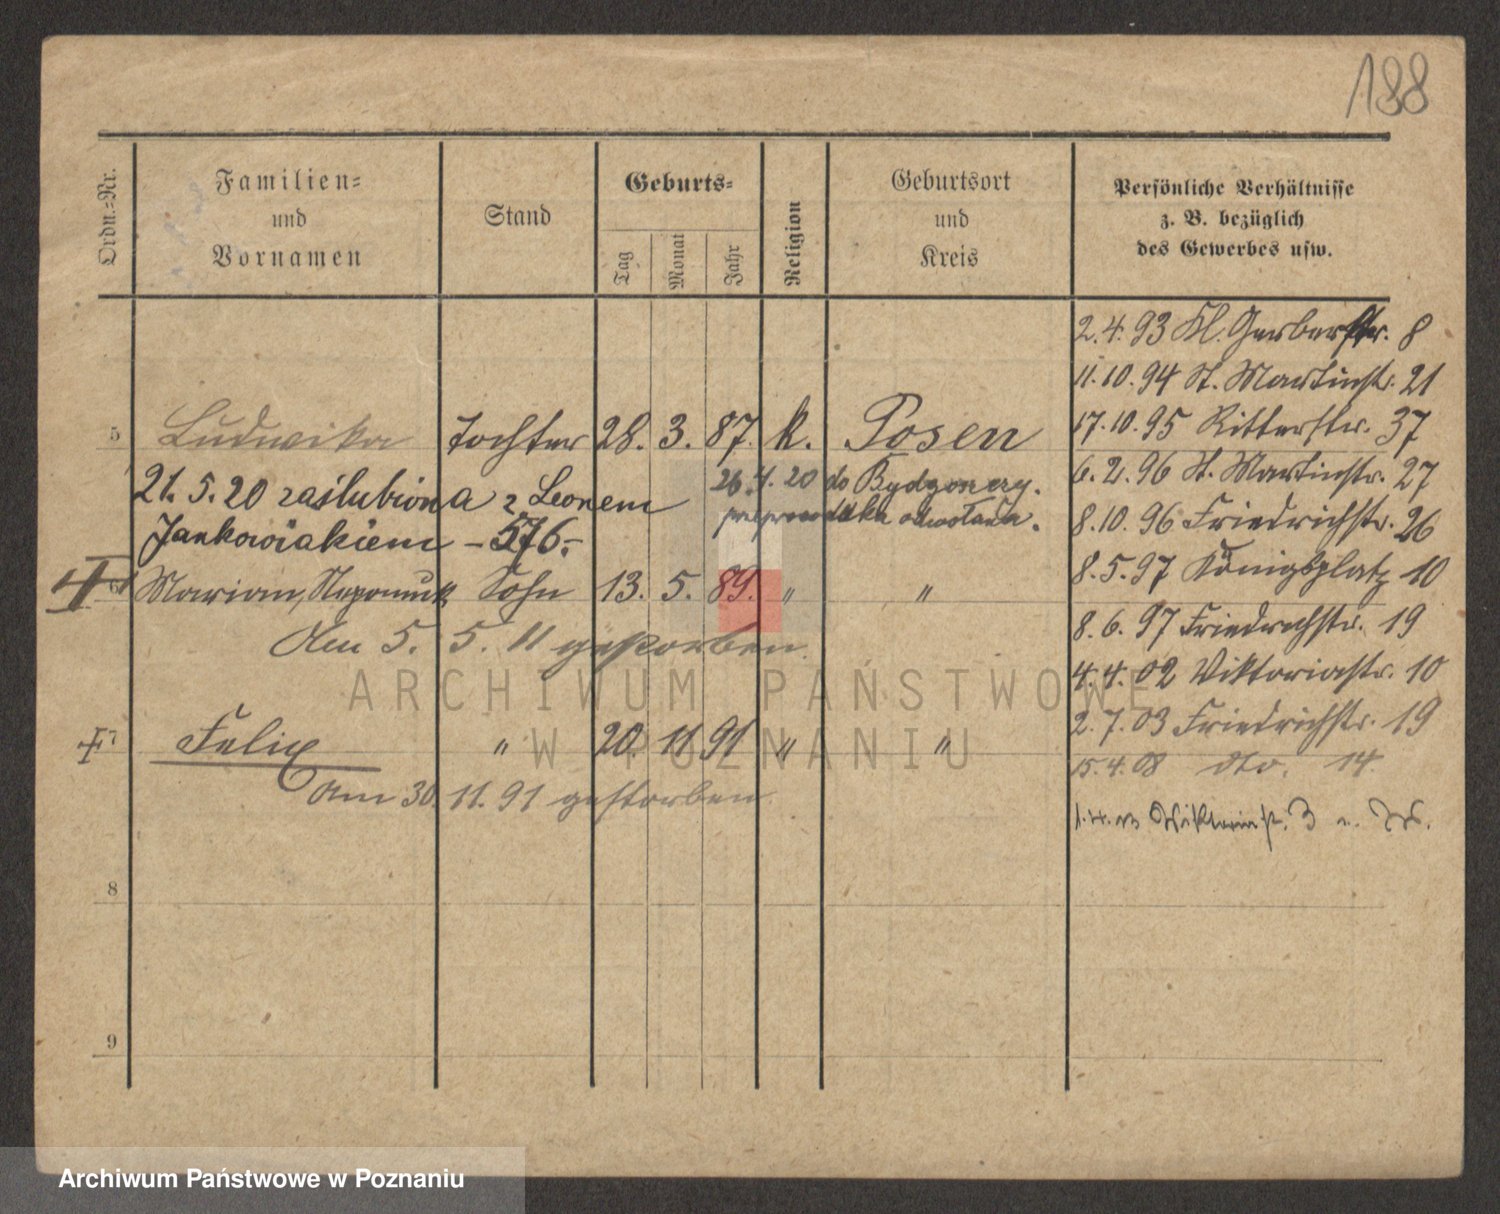 188
Ordn.-Nr.
Familien-
und
Vornamen
Stand
Geburts-
Tag
Monat
Jahr
Religion
Geburtsort
und
Kreis
Persönliche Verhältnisse
z. B. bezüglich
des Gewerbes usw.
2.4.93 Kl. Gerberstr. 8
11.10.94 St. Martinstr. 21
5 Ludwika Tochter 28. 3. 87. k. Posen
17.10.95 Ritterstr. 37
21.5.20 zaślubiona z Leonem
26.4.20 do Bydgoszczy.
6.2.96 St. Martinstr. 27
Jankowiakiem – 576.-
odwołana.
8.10.96 Friedrichstr. 26
6 Marian, Nepomuk Sohn 13. 5. 89. " "
8.5.97 Königsplatz 10
Am 5. 5. 11 gestorben.
8.6.97 Friedrichstr. 19
4.4.02 Viktoriastr. 10
7 Felix " 20. 11 91 " "
2.7.03 Friedrichstr. 19
15.4.08 dto. 14.
Am 30. 11. 91 gestorben.
8
9
ARCHIWUM PAŃSTWOWE
W POZNANIU
Archiwum Państwowe w Poznaniu